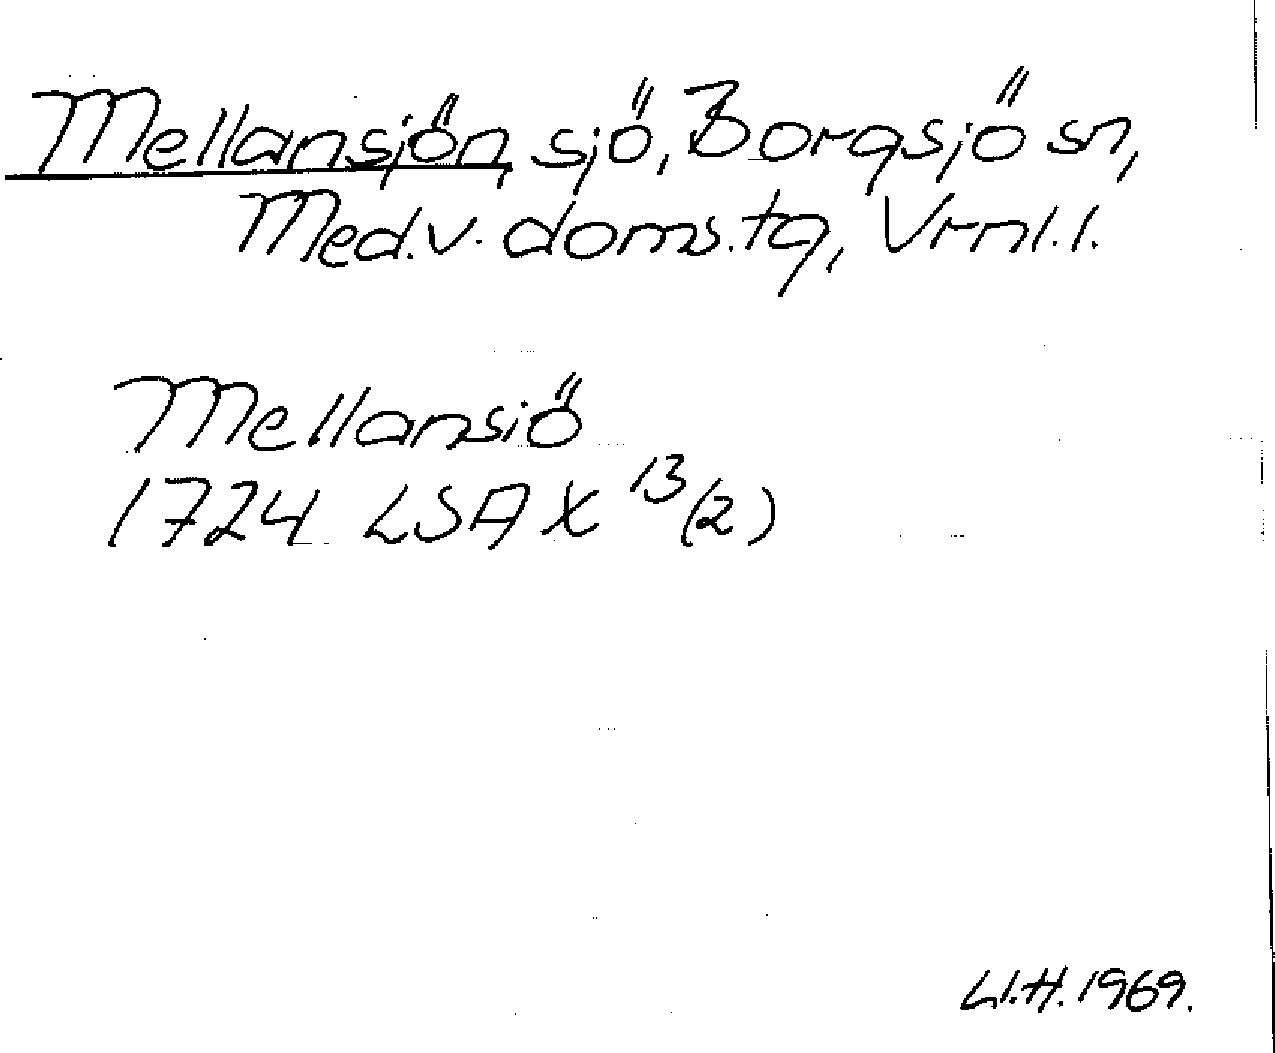 Mellansjön, sjö, Borgsjö sn,
Med.v. doms.tg, Vrnl.l.
Mellansiö
1724 LSA X 13/(2)
Ll.H. 1969.